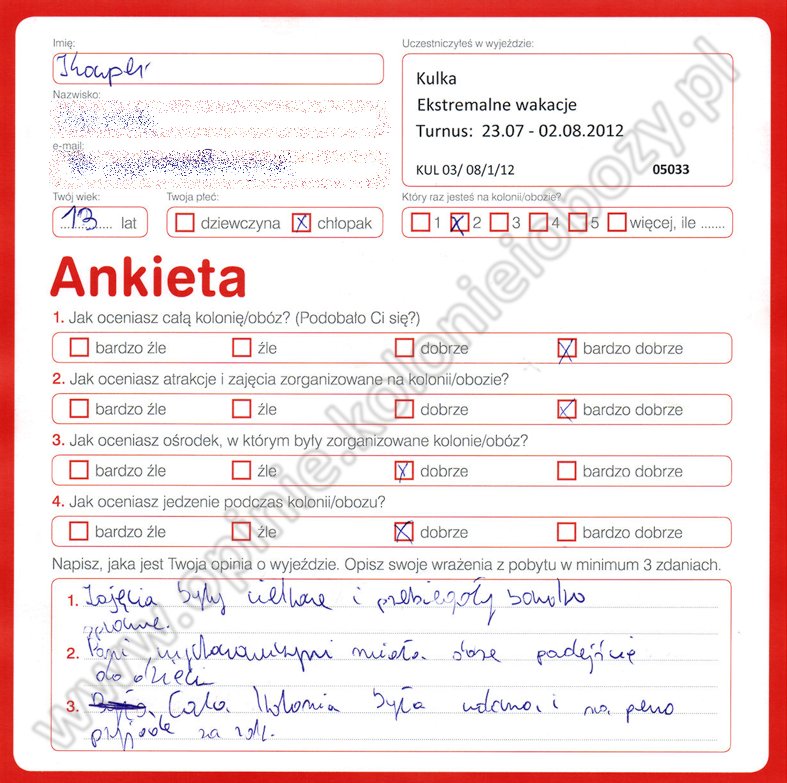 Imię:
Uczestniczyłeś w wyjeździe:
Kacper
Kulka
Nazwisko:
Ekstremalne wakacje
Turnus: 23.07 - 02.08.2012
e-mail:
KUL 03/ 08/1/12 05033
Twój wiek:
Twoja płeć:
Który raz jesteś na kolonii/obozie?
13 lat
dziewczyna chłopak
1 2 3 4 5 więcej, ile .......
Ankieta
1. Jak oceniasz całą kolonię/obóz? (Podobało Ci się?)
bardzo źle źle dobrze bardzo dobrze
2. Jak oceniasz atrakcje i zajęcia zorganizowane na kolonii/obozie?
bardzo źle źle dobrze bardzo dobrze
3. Jak oceniasz ośrodek, w którym były zorganizowane kolonie/obóz?
bardzo źle źle dobrze bardzo dobrze
4. Jak oceniasz jedzenie podczas kolonii/obozu?
bardzo źle źle dobrze bardzo dobrze
Napisz, jaka jest Twoja opinia o wyjeździe. Opisz swoje wrażenia z pobytu w minimum 3 zdaniach.
1. Zajęcia były ciekawe i przebiegały bardzo
2. Pani miała podejście
do dzieci
3. Cała kolonia była udana i na pewno
przyjadę za rok.
www.opinie.kolonieiobozy.pl